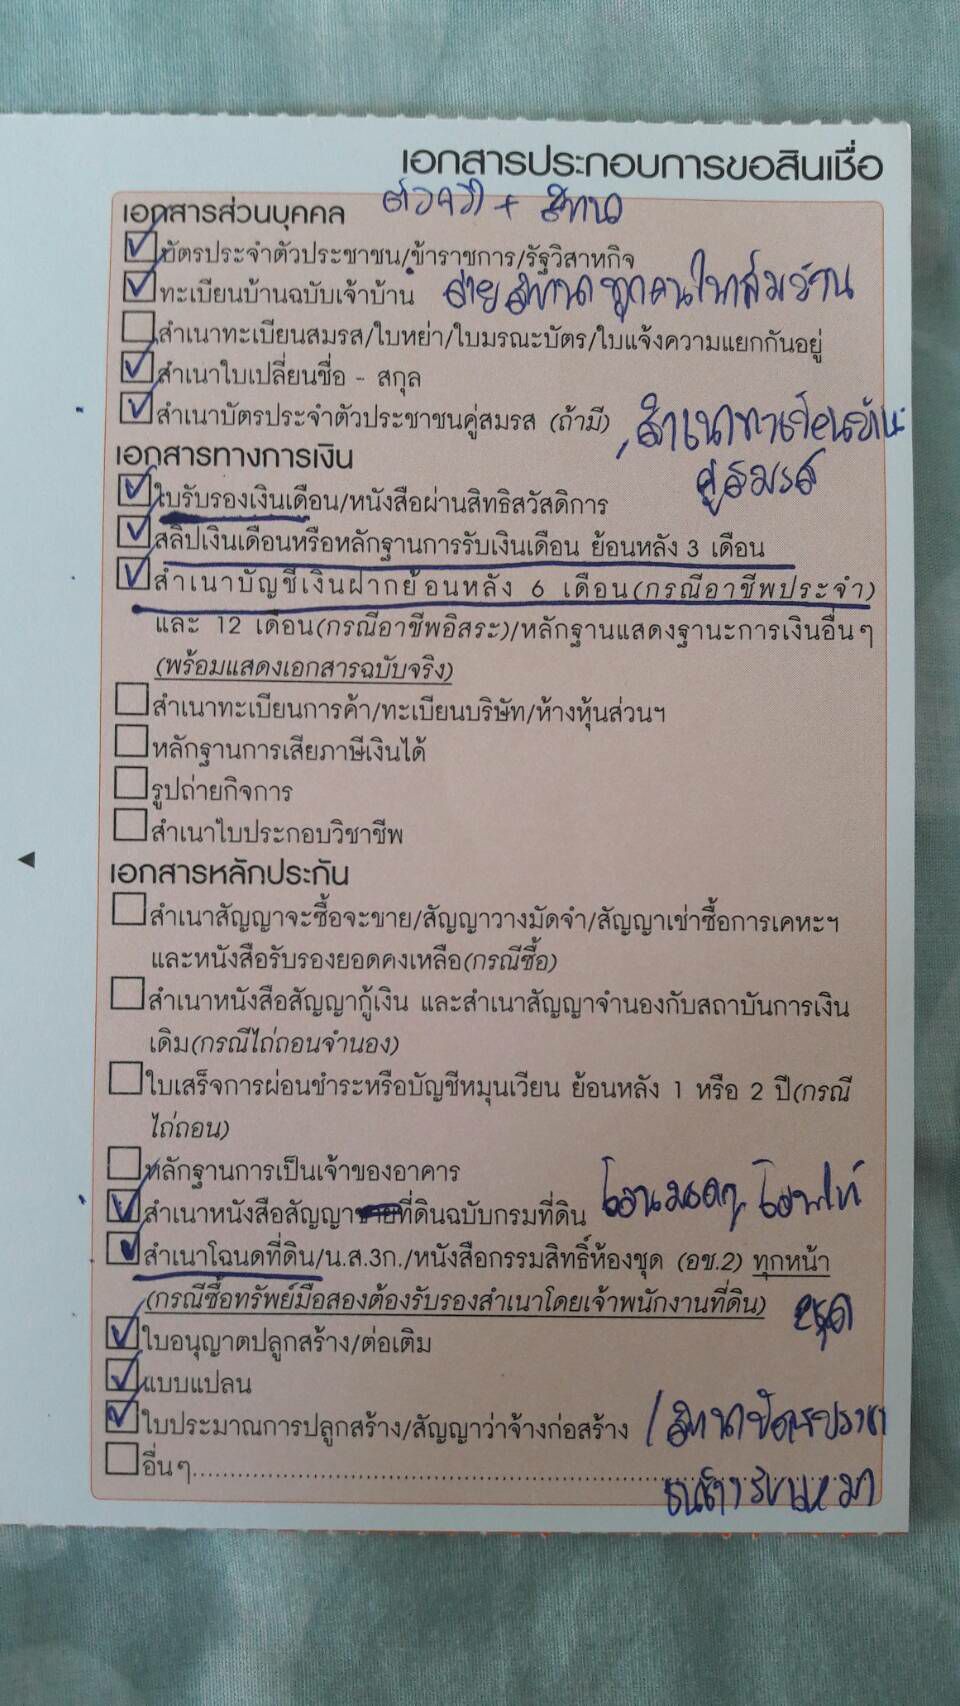 เอกสารประกอบการขอสินเชื่อ
ตัวจริง + สำเนา
เอกสารส่วนบุคคล
บัตรประจำตัวประชาชน/ข้าราชการ/รัฐวิสาหกิจ
ทะเบียนบ้านฉบับเจ้าบ้าน ถ่ายสำเนาทุกคนในทะเบียนบ้าน
สำเนาทะเบียนสมรส/ใบหย่า/ใบมรณะบัตร/ใบแจ้งความแยกกันอยู่
สำเนาใบเปลี่ยนชื่อ - สกุล
สำเนาบัตรประจำตัวประชาชนคู่สมรส (ถ้ามี) , สำเนาทะเบียนบ้าน
คู่สมรส
เอกสารทางการเงิน
ใบรับรองเงินเดือน/หนังสือผ่านสิทธิสวัสดิการ
สลิปเงินเดือนหรือหลักฐานการรับเงินเดือน ย้อนหลัง 3 เดือน
สำเนาบัญชีเงินฝากย้อนหลัง 6 เดือน(กรณีอาชีพประจำ)
และ 12 เดือน(กรณีอาชีพอิสระ)/หลักฐานแสดงฐานะการเงินอื่นๆ
(พร้อมแสดงเอกสารฉบับจริง)
สำเนาทะเบียนการค้า/ทะเบียนบริษัท/ห้างหุ้นส่วนฯ
หลักฐานการเสียภาษีเงินได้
รูปถ่ายกิจการ
สำเนาใบประกอบวิชาชีพ
เอกสารหลักประกัน
สำเนาสัญญาจะซื้อจะขาย/สัญญาวางมัดจำ/สัญญาเช่าซื้อการเคหะฯ
และหนังสือรับรองยอดคงเหลือ(กรณีซื้อ)
สำเนาหนังสือสัญญากู้เงิน และสำเนาสัญญาจำนองกับสถาบันการเงิน
เดิม(กรณีไถ่ถอนจำนอง)
ใบเสร็จการผ่อนชำระหรือบัญชีหมุนเวียน ย้อนหลัง 1 หรือ 2 ปี(กรณี
ไถ่ถอน)
หลักฐานการเป็นเจ้าของอาคาร
สำเนาหนังสือสัญญาที่ดินฉบับกรมที่ดิน โอนมรดก,
สำเนาโฉนดที่ดิน/น.ส.3ก./หนังสือกรรมสิทธิ์ห้องชุด (อช.2) ทุกหน้า
(กรณีซื้อทรัพย์มือสองต้องรับรองสำเนาโดยเจ้าพนักงานที่ดิน)
ใบอนุญาตปลูกสร้าง/ต่อเติม
แบบแปลน
ใบประมาณการปลูกสร้าง/สัญญาว่าจ้างก่อสร้าง / สำเนาบัตรประชา
อื่นๆ